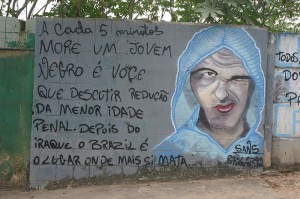 A CADA 5 minutos
MORE UM JOVEM
NEGRO E VOÇE
QUE DESCUTIR REDUÇÃO
DA MENOR IDADE
PENAL. DEPOIS DO
IRAQUE. O BRAZIL É
O LUGAR ONDE MAIS SI MATA
SANS
TODOS,
DO
PA